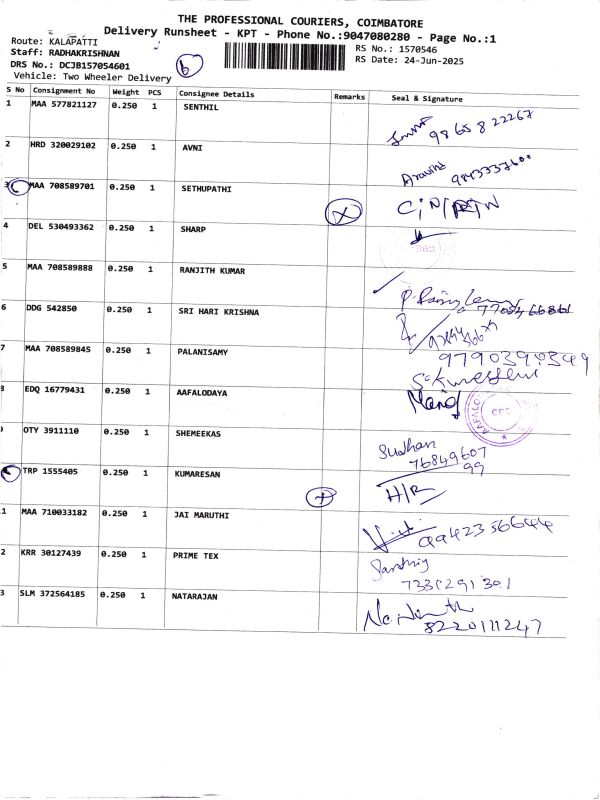 THE PROFESSIONAL COURIERS, COIMBATORE
Delivery Runsheet - KPT - Phone No.:9047080280 - Page No.:1
Route: KALAPATTI
Staff: RADHAKRISHNAN
DRS No.: DCJB157054601
Vehicle: Two Wheeler Delivery
b
RS No.: 1570546
RS Date: 24-Jun-2025
S No Consignment No Weight PCS Consignee Details Remarks Seal & Signature
1 MAA 577821127 0.250 1 SENTHIL
98658 22267
2 HRD 320029102 0.250 1 AVNI
Aravind
3 MAA 708589701 0.250 1 SETHUPATHI
4 DEL 530493362 0.250 1 SHARP
5 MAA 708589888 0.250 1 RANJITH KUMAR
6 DDG 542850 0.250 1 SRI HARI KRISHNA
7 MAA 708589845 0.250 1 PALANISAMY
9790390349
EDQ 16779431 0.250 1 AAFALODAYA
OTY 3911110 0.250 1 SHEMEEKAS
Sudhan
76849607
99
TRP 1555405 0.250 1 KUMARESAN
H/R
1 MAA 710033182 0.250 1 JAI MARUTHI
9942356644
2 KRR 30127439 0.250 1 PRIME TEX
7331291301
3 SLM 372564185 0.250 1 NATARAJAN
8220111247